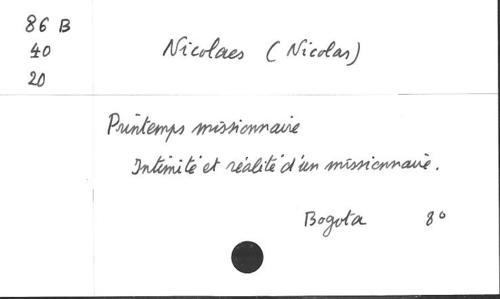 86 B
40
20
Nicolaes (Nicolas)
Printemps missionnaire
Intimité et réalité d'un missionnaire.
Bogota 8°